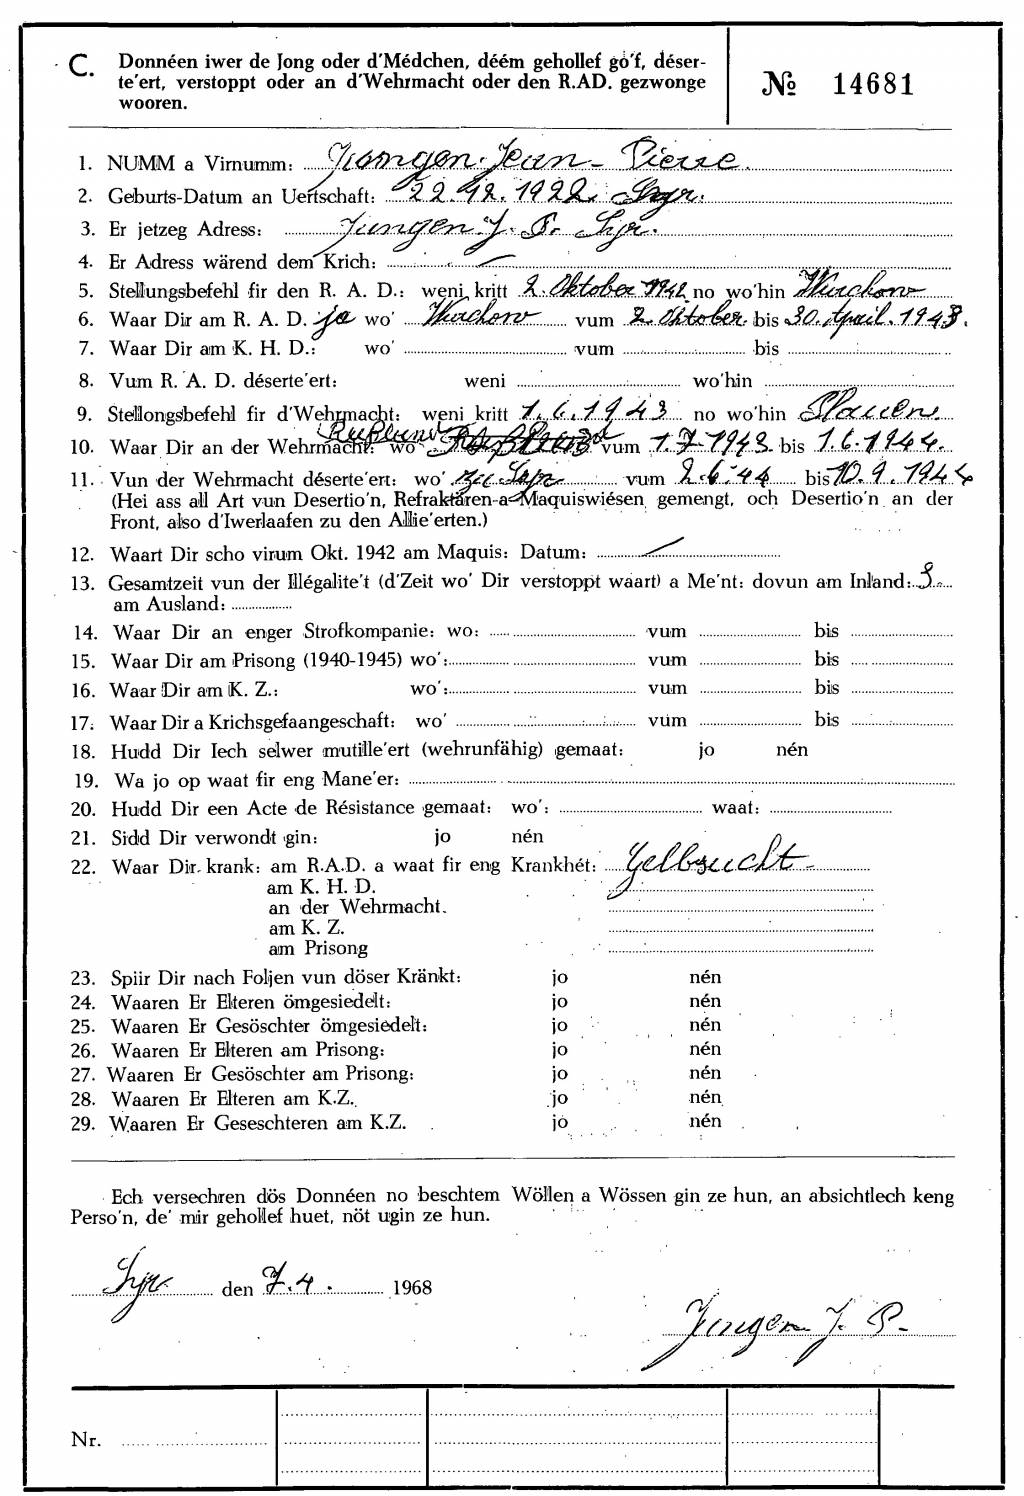 C. Donnéen iwer de Jong oder d'Médchen, déém gehollef gó'f, déser-
te'ert, verstoppt oder an d'Wehrmacht oder den R.AD. gezwonge
wooren.
№ 14681
1. NUMM a Virnumm: Jungen Jean-Pierre
2. Geburts-Datum an Uertschaft: 22.12.1922.
3. Er jetzeg Adress: Jungen J. P. Syr.
4. Er Adress wärend dem Krich: —
5. Stellungsbefehl fir den R. A. D.: weni kritt 2. Oktober 1942 no wo'hin Wurchow
6. Waar Dir am R. A. D. ja wo' Wurchow vum 2. Oktober bis 30. April. 1943.
7. Waar Dir am K. H. D.: wo' vum bis
8. Vum R. A. D. déserte'ert: weni wo'hin
9. Stellongsbefehl fir d'Wehrmacht: weni kritt 1.6.1943 no wo'hin Plauen
10. Waar Dir an der Wehrmacht: wo' Rußland vum 1.7.1943. bis 1.6.1944.
11. Vun der Wehrmacht déserte'ert: wo' zu Syr vum 2.6.44 bis 10.9.1944
(Hei ass all Art vun Desertio'n, Refraktären a Maquiswiésen gemengt, och Desertio'n an der
Front, also d'Iwerlaafen zu den Allie'erten.)
12. Waart Dir scho virum Okt. 1942 am Maquis: Datum: —
13. Gesamtzeit vun der Illégalite't (d'Zeit wo' Dir verstoppt waart) a Me'nt: dovun am Inland: 3
am Ausland:
14. Waar Dir an enger Strofkompanie: wo: vum bis
15. Waar Dir am Prisong (1940-1945) wo': vum bis
16. Waar Dir am K. Z.: wo': vum bis
17. Waar Dir a Krichsgefaangeschaft: wo' vum bis
18. Hudd Dir Iech selwer mutille'ert (wehrunfähig) gemaat: jo nén
19. Wa jo op waat fir eng Mane'er:
20. Hudd Dir een Acte de Résistance gemaat: wo': waat:
21. Sidd Dir verwondt gin: jo nén
22. Waar Dir krank: am R.A.D. a waat fir eng Krankhét: Gelbsucht
am K. H. D.
an der Wehrmacht.
am K. Z.
am Prisong
23. Spiir Dir nach Foljen vun döser Kränkt: jo nén
24. Waaren Er Elteren ömgesiedelt: jo nén
25. Waaren Er Gesöschter ömgesiedelt: jo nén
26. Waaren Er Elteren am Prisong: jo nén
27. Waaren Er Gesöschter am Prisong: jo nén
28. Waaren Er Elteren am K.Z. jo nén
29. Waaren Er Geseschteren am K.Z. jo nén
Ech versechren dös Donnéen no beschtem Wöllen a Wössen gin ze hun, an absichtlech keng
Perso'n, de' mir gehollef huet, nöt ugin ze hun.
Syr den 7.4. 1968
Jungen J. P.
Nr.